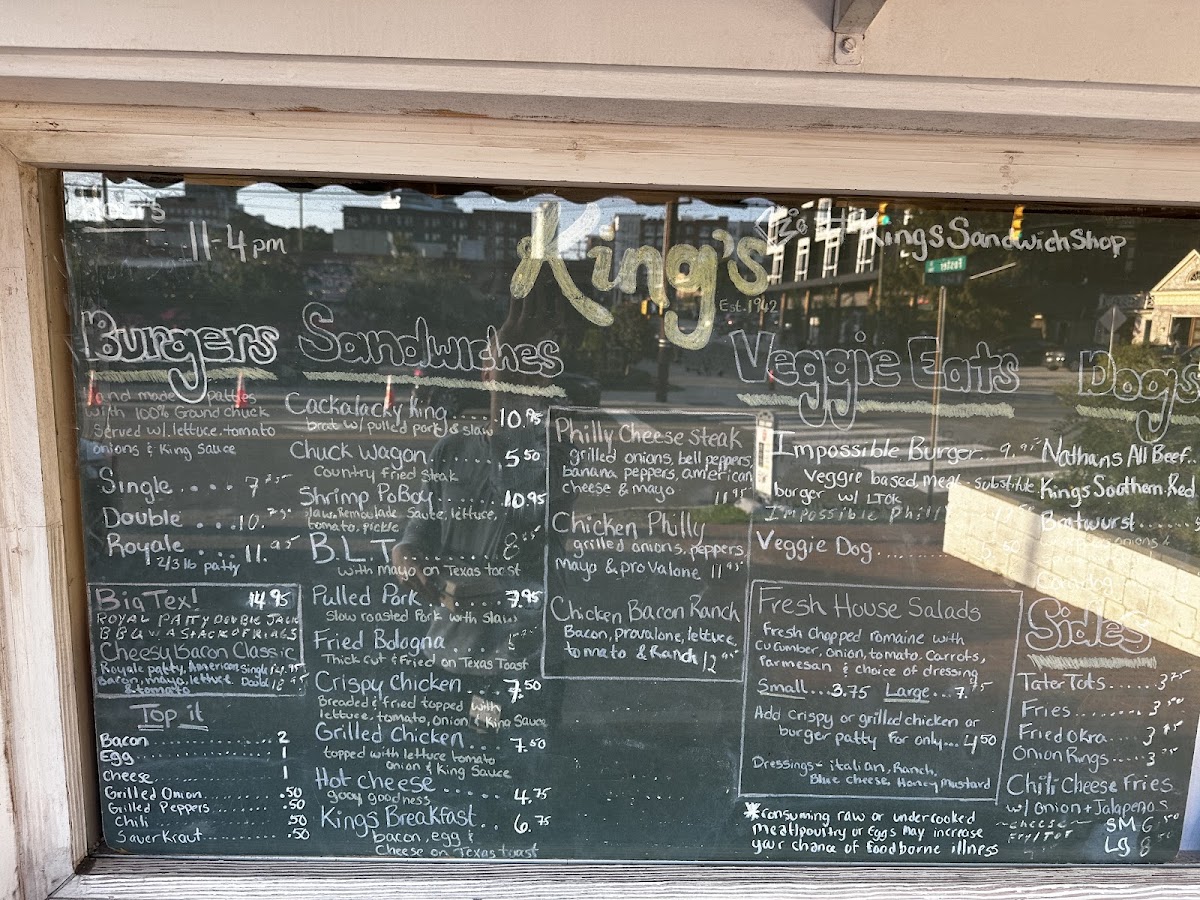 11-4pm
King's
Est. 1942
KingsSandwichShop
Foster
Burgers
Hand made patties
with 100% Ground chuck
Served w/. lettuce. tomato
onions & King Sauce
Single.... 7
Double ...10.
Royale .... 11.95
2/3 lb patty
Big Tex! 14.95
ROYAL PATTY DOUBLE JACK
BBQ W/A STACK OF RINGS
Cheesy Bacon Classic
Royale patty, American Single 14.95
Bacon, mayo, lettuce. Double 12
& tomato
Top it
Bacon................ 2
Egg................ 1
Cheese................ 1
Grilled Onion........ .50
Grilled Peppers........ .50
Chili................ .50
Sauer Kraut........ .50
Sandwiches
Cackalacky King....10.95
brat w/ pulled pork & slaw
Chuck Wagon........ 5.50
Country fried Steak
Shrimp PoBoy........10.95
Slaw, Remoulade Saute, lettuce,
tomato, pickle
B.L.T........ 8
with mayo on Texas toast
Pulled Pork........ 7.95
Slow roasted Pork with slaw
Fried Bologna....
Thick cut & Fried on Texas Toast
Crispy Chicken.... 7.50
Breaded & fried topped with
lettuce, tomato, onion & King Sauce
Grilled Chicken.... 7.50
topped with lettuce tomato
onion & King Sauce
Hot Cheese........ 4.75
gooy goodness
Kings Breakfast.. 6.75
bacon, egg &
Cheese on Texas toast
Philly Cheese Steak
grilled onions, bell peppers,
banana peppers, american
cheese & mayo 11.95
Chicken Philly
grilled onions, peppers,
mayo & provalone 11.95
Chicken Bacon Ranch
Bacon, provalone, lettuce,
tomato & Ranch 12
Veggie Eats
Impossible Burger.. 9.
Veggie based, meat-substitute
burger w/ LTOK
Impossible Philly
Veggie Dog........
Fresh House Salads
Fresh Chopped romaine with
cucumber, onion, tomato, Carrots,
Parmesan & choice of dressing
Small...3.75 Large...7.
Add crispy or grilled chicken or
burger patty for only... 4.50
Dressings- italian, Ranch,
Blue cheese, Honey Mustard
*Consuming raw or undercooked
meat/poultry or Eggs May increase
your chance of foodborne illness
Dogs
Nathans All Beef..
Kings Southern Red
Bratwurst........
onions &
Corndog
Sides
Tater Tots...... 3
Fries........ 3.50
Fried Okra.... 3
Onion Rings.... 3
Chili Cheese Fries
w/ onion + Jalapeños
~cheese~ SM 6
Fry/TOT LG 8